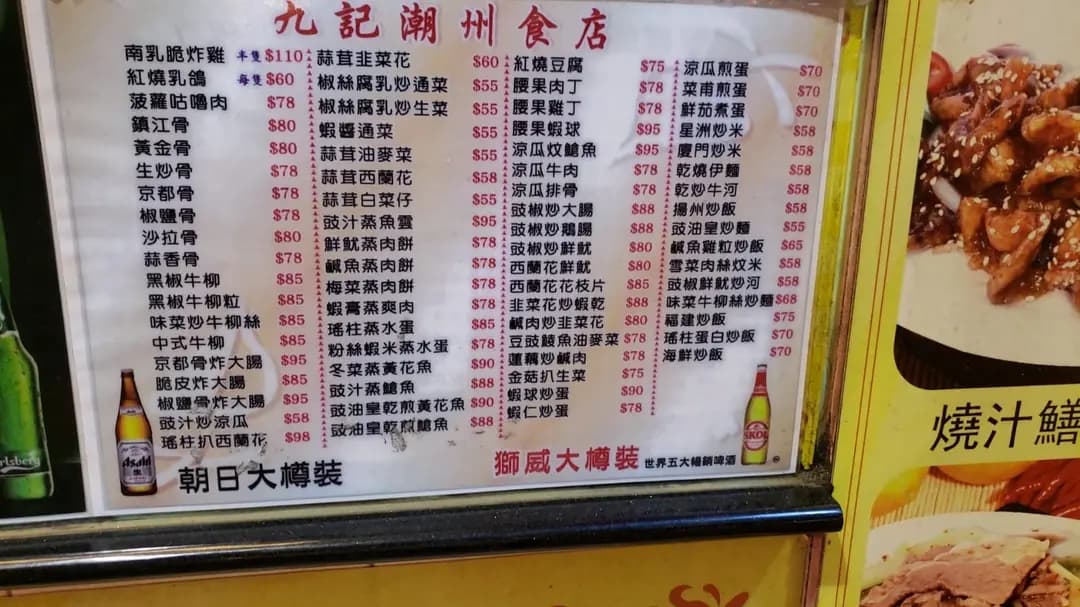 九記潮州食店
南乳脆炸雞 半隻 $110
紅燒乳鴿 每隻 $60
菠蘿咕嚕肉 $78
鎮江骨 $80
黃金骨 $80
生炒骨 $78
京都骨 $78
椒鹽骨 $78
沙拉骨 $80
蒜香骨 $78
黑椒牛柳 $85
黑椒牛柳粒 $85
味菜炒牛柳絲 $85
中式牛柳 $85
京都骨炸大腸 $95
脆皮炸大腸 $85
椒鹽骨炸大腸 $95
豉汁炒涼瓜 $58
瑤柱扒西蘭花 $98
蒜茸韭菜花 $60
椒絲腐乳炒通菜 $55
椒絲腐乳炒生菜 $55
蝦醬通菜 $55
蒜茸油麥菜 $55
蒜茸西蘭花 $58
蒜茸白菜仔 $55
豉汁蒸魚雲 $95
鮮魷蒸肉餅 $78
鹹魚蒸肉餅 $78
梅菜蒸肉餅 $78
蝦膏蒸爽肉 $78
瑤柱蒸水蛋 $85
粉絲蝦米蒸水蛋 $78
冬菜蒸黃花魚 $90
豉汁蒸鱠魚 $88
豉油皇乾煎黃花魚 $90
豉油皇乾煎鱠魚 $88
紅燒豆腐 $75
腰果肉丁 $78
腰果雞丁 $78
腰果蝦球 $95
涼瓜炆鱠魚 $95
涼瓜牛肉 $78
涼瓜排骨 $78
豉椒炒大腸 $88
豉椒炒鵝腸 $88
豉椒炒鮮魷 $80
西蘭花鮮魷 $80
西蘭花花枝片 $85
韭菜花炒蝦乾 $88
鹹肉炒韭菜花 $80
豆豉鯪魚油麥菜 $78
蓮藕炒鹹肉 $78
金菇扒生菜 $75
蝦球炒蛋 $90
蝦仁炒蛋 $78
涼瓜煎蛋 $70
菜甫煎蛋 $70
鮮茄煮蛋 $70
星洲炒米 $58
廈門炒米 $58
乾燒伊麵 $58
乾炒牛河 $58
揚州炒飯 $58
豉油皇炒麵 $55
鹹魚雞粒炒飯 $65
雪菜肉絲炆米 $58
豉椒鮮魷炒河 $58
味菜牛柳絲炒麵 $68
福建炒飯 $75
瑤柱蛋白炒飯 $70
海鮮炒飯 $70
Asahi
朝日大樽裝
獅威大樽裝 世界五大暢銷啤酒
SKOL
rlsberg
燒汁鱔